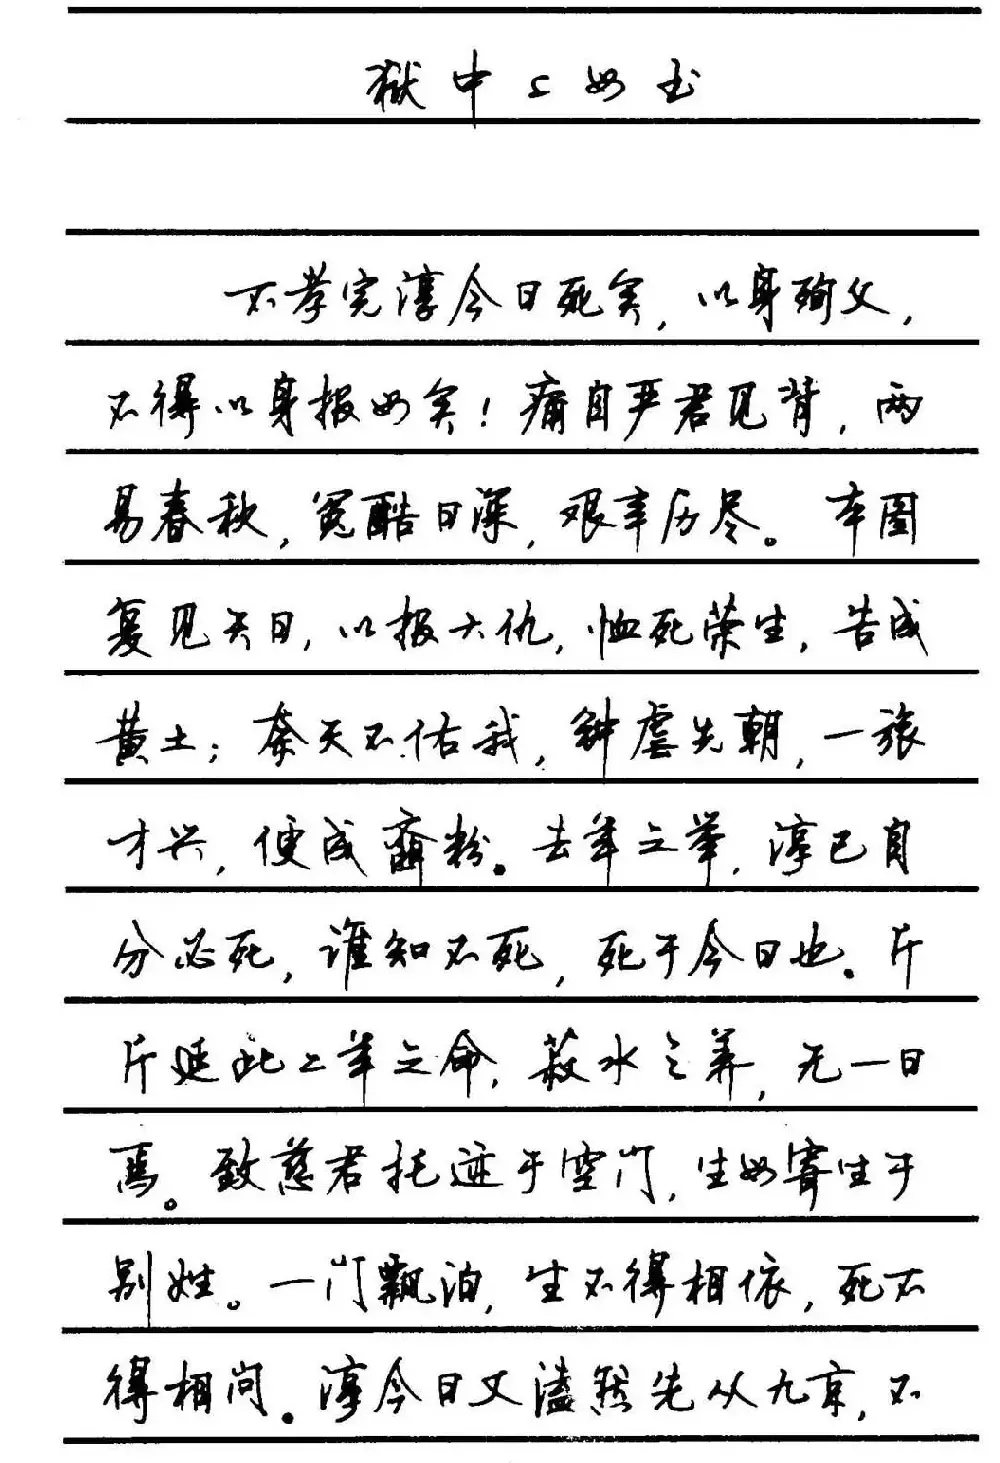 狱中上母书
不孝完淳今日死矣，以身殉父，
不得以身报母矣！痛自严君见背，两
易春秋，冤酷日深，艰辛历尽。本图
复见天日，以报大仇，恤死荣生，告成
黄土；奈天不佑我，钟虐先朝，一旅
才兴，便成齑粉。去年之举，淳已自
分必死，谁知不死，死于今日也。斤
斤延此二年之命，菽水之养，无一日
焉。致慈君托迹于空门，生母寄生于
别姓。一门飘泊，生不得相依，死不
得相问。淳今日又溘然先从九京，不